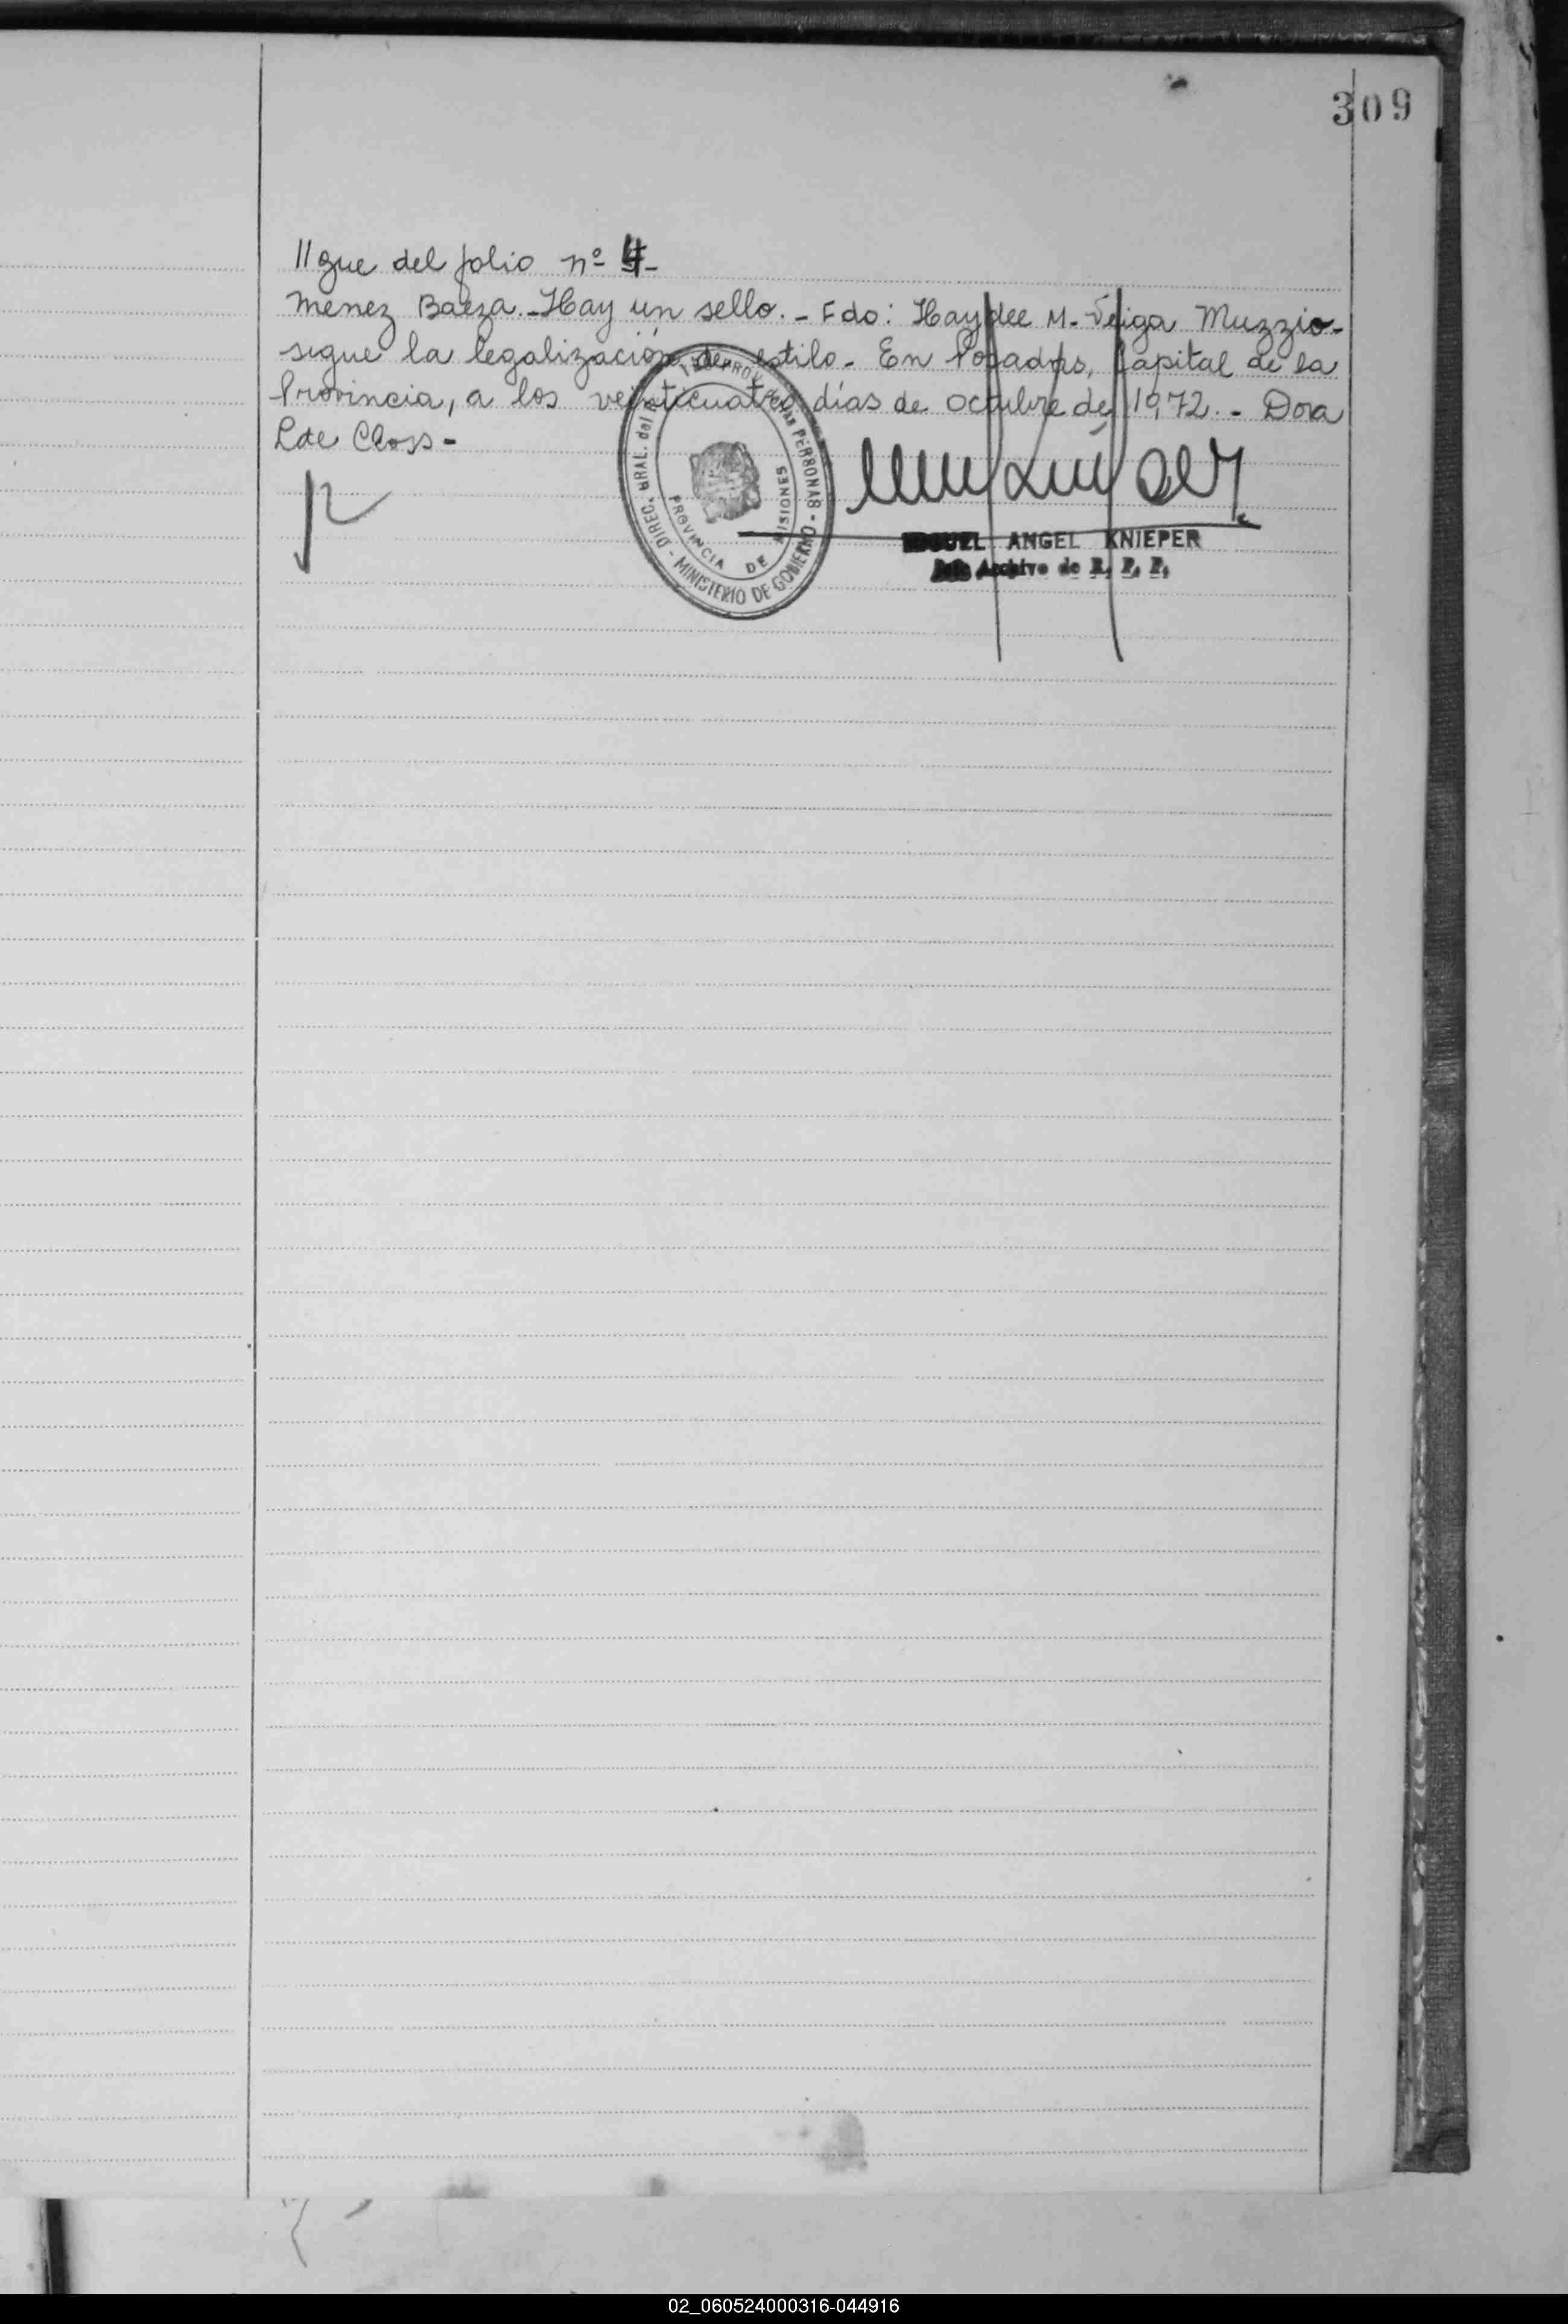 309
//gue del folio nº 4-
menez Baeza.-Hay un sello.- Fdo: Haydee M. Veiga Muzzio-
sigue la legalización de estilo.- En Posadas, Capital de la
Provincia, a los veinticuatro días de octubre de 1972.- Dora
L de Closs-
DIREC. GRAL. del PROV. de las PERSONAS - MINISTERIO DE GOBIERNO -
PROVINCIA DE MISIONES
MIGUEL ANGEL KNIEPER
Jefe Archivo de R. P. P.
02_060524000316-044916